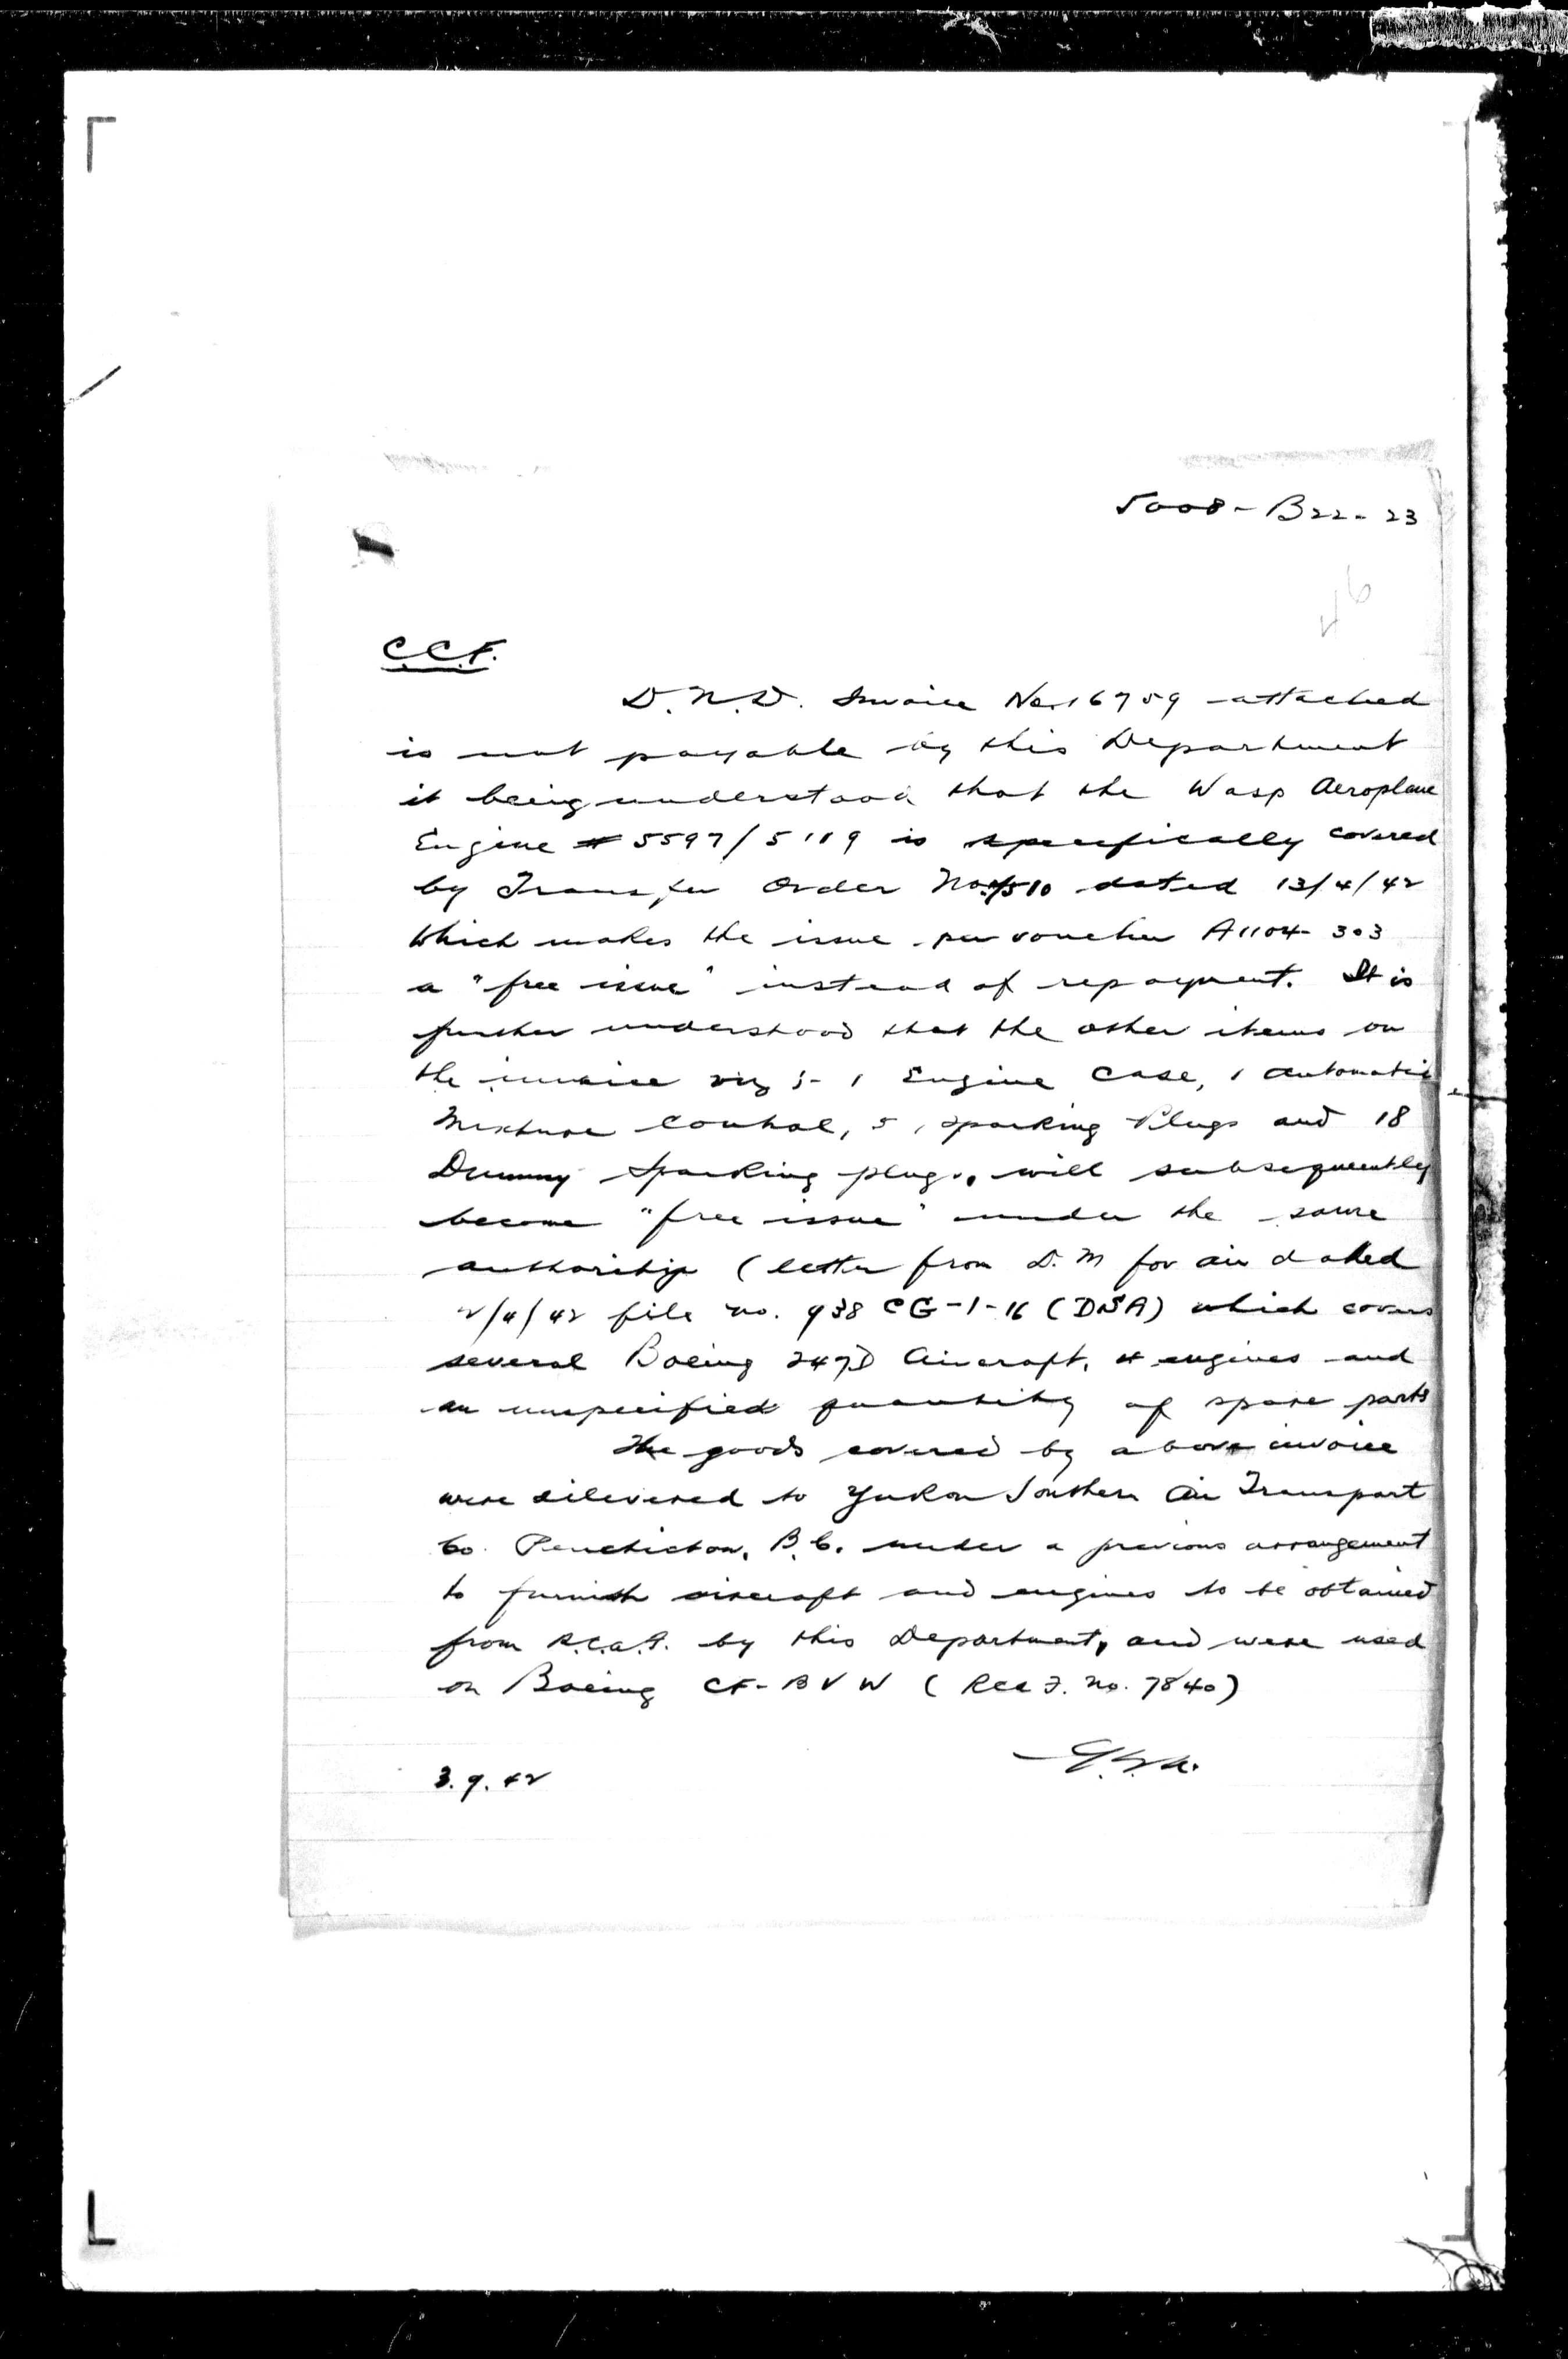 5008-B22-23
46
C.C.F.
D.N.D. Invoice No. 16759 attached
is not payable by this Department
it being understood that the Wasp Aeroplane
Engine # 5597/5119 is specifically covered
by Transfer Order No. 510 dated 13/4/42
which makes the issue per voucher A1104-303
a "free issue" instead of repayment. It is
further understood that the other items on
the invoice viz :- 1 Engine Case, 1 automatic
Mixture Control, 5, Sparking Plugs and 18
Dummy Sparking plugs, will subsequently
become "free issue" under the same
authority (letter from D.M for air dated
2/4/42 file no. 938 CG-1-16 (DSA) which covers
several Boeing 247D Aircraft, 4 engines and
an unspecified quantity of spare parts
The goods covered by above invoice
were delivered to Yukon Southern Air Transport
Co. Penticton, B.C. under a previous arrangement
to furnish aircraft and engines to be obtained
from R.C.A.F. by this Department, and were used
on Boeing CF-BVW (RCAF. No. 7840)
3.9.42